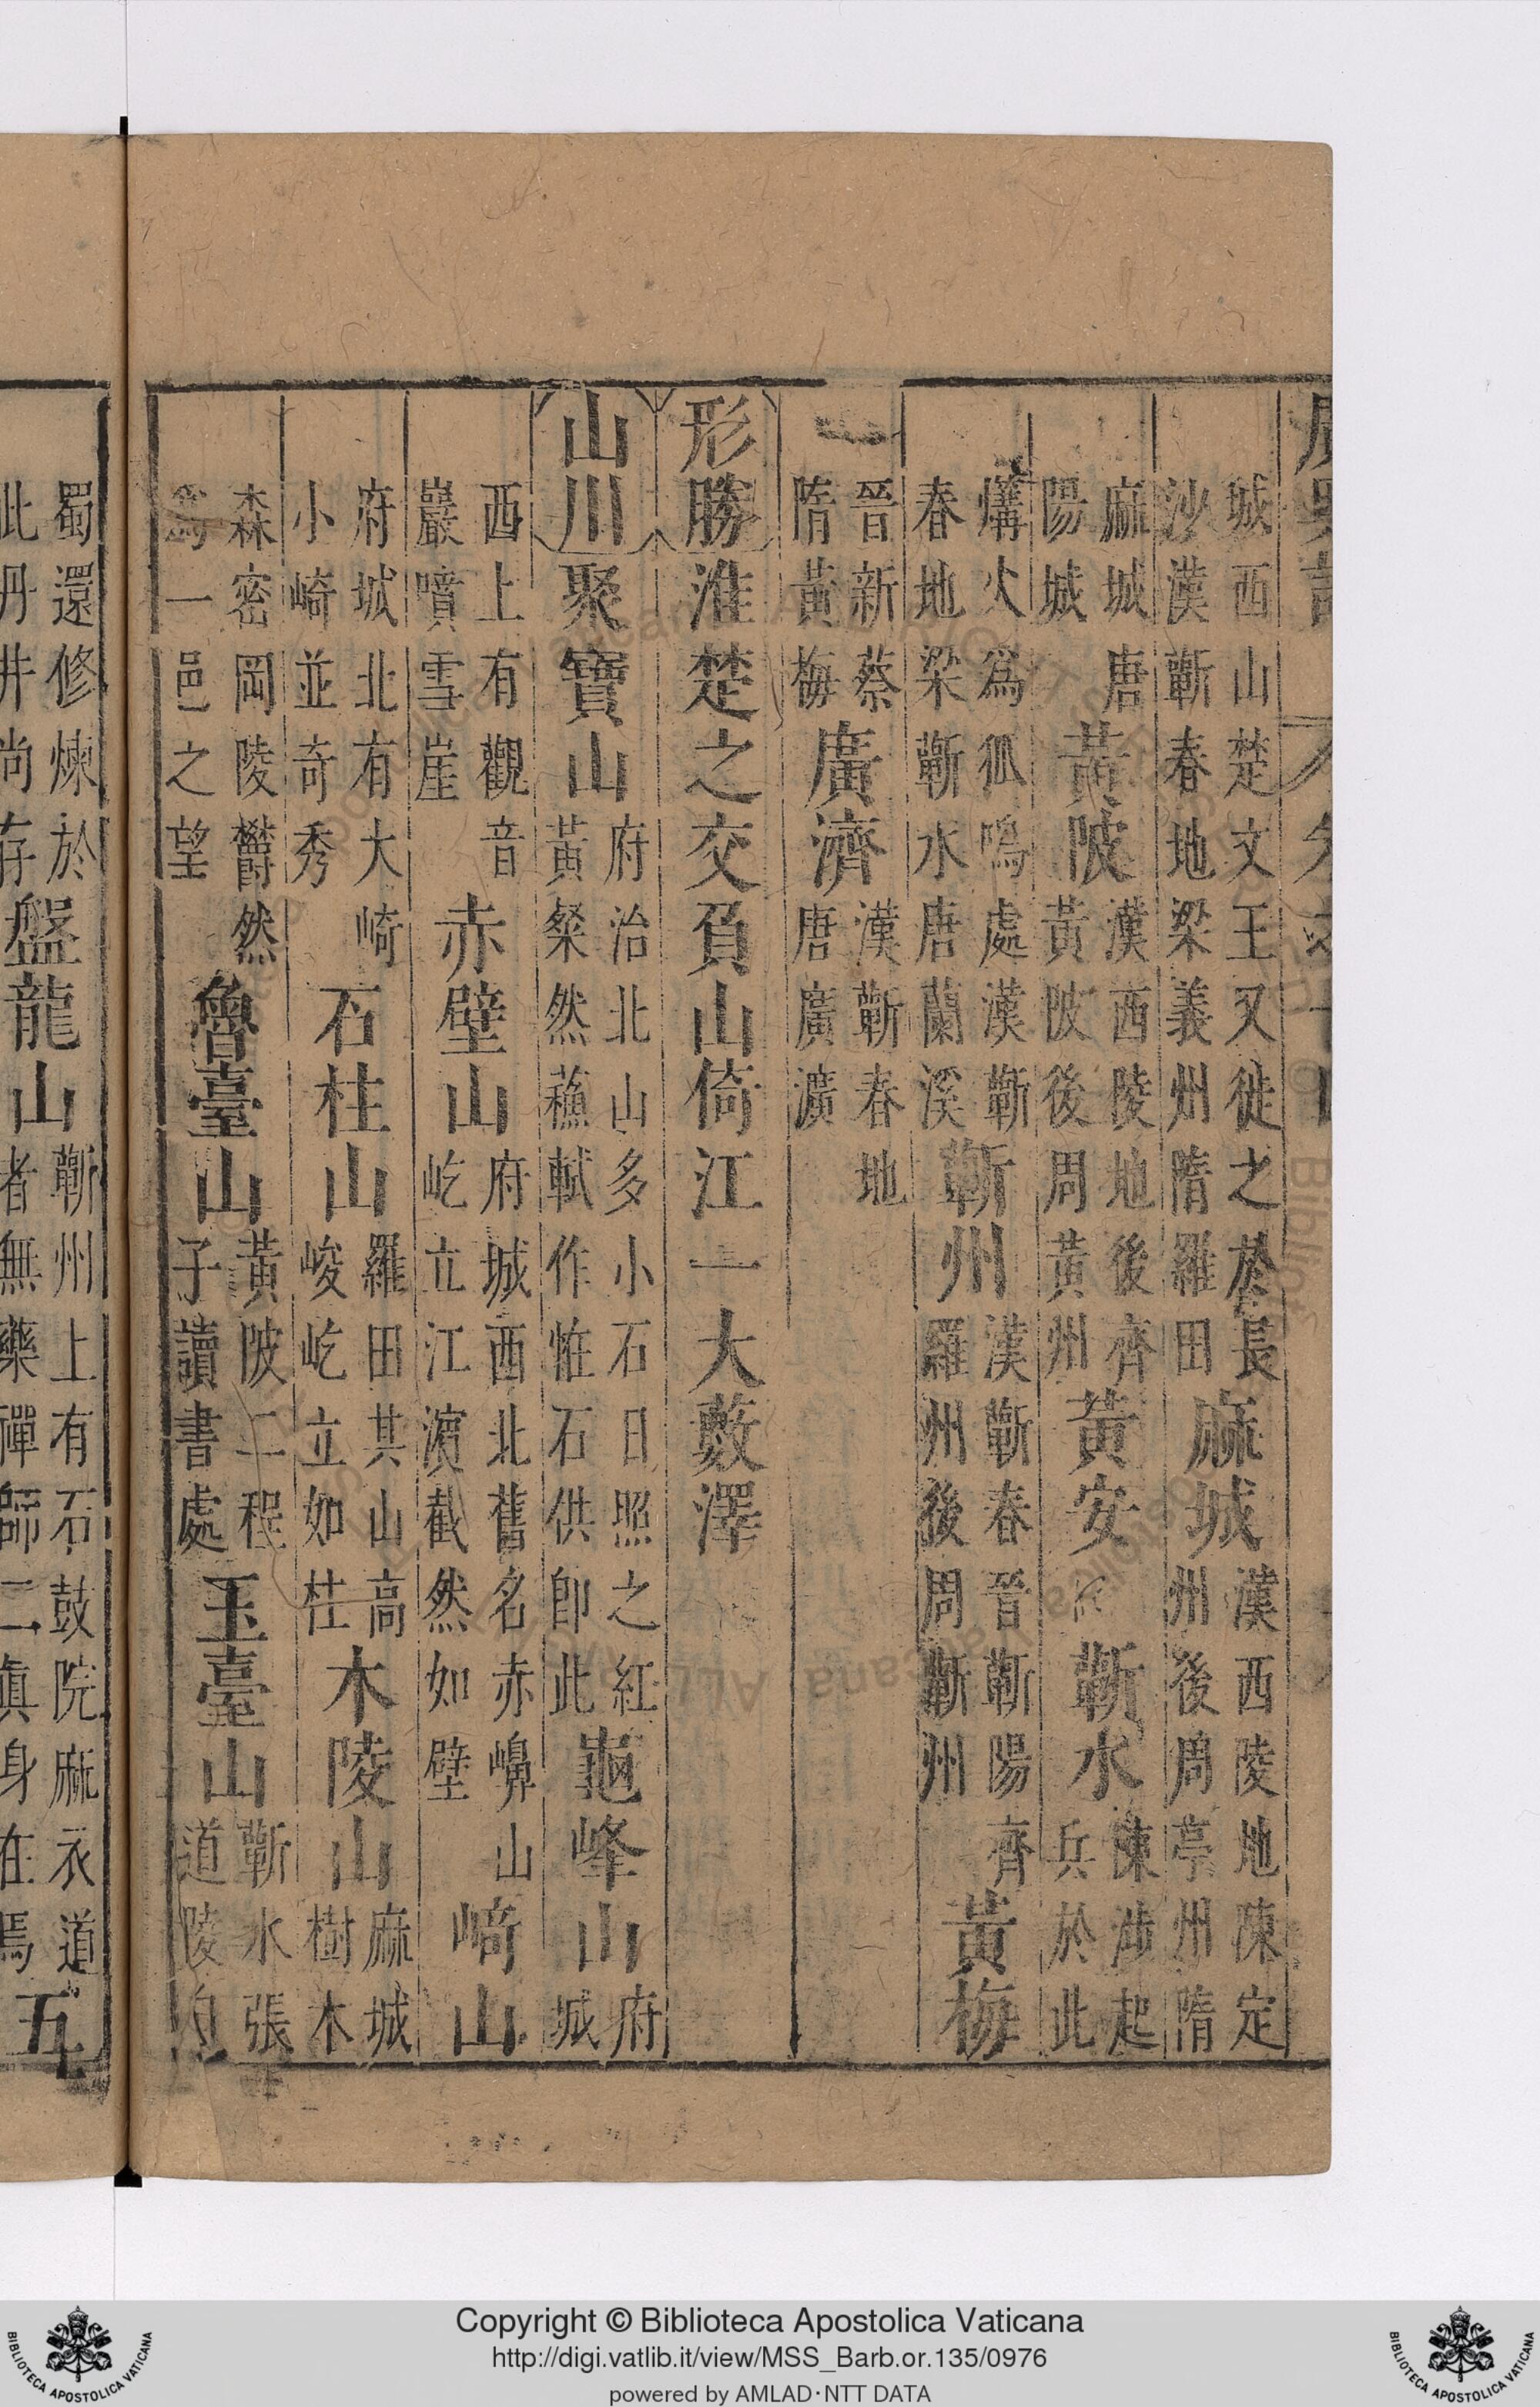 城西山楚文王又徙之於長
沙漢蘄春地梁義州隋羅田
麻城
漢西陵地陳定
州後周亭州隋
麻城唐
陽城
黃陂
漢西陵地後齊
黃陂後周黃州
黃安
蘄水
陳涉起
兵於此
篝火爲狐鳴處漢蘄
春地梁蘄水唐蘭溪
蘄州
漢蘄春晉蘄陽齊
羅州後周蘄州
黃梅
晉新蔡
隋黃梅
廣濟
漢蘄春地
唐廣濟
形勝淮楚之交負山倚江一大藪澤
山川聚寶山
府治北山多小石日照之紅
黃粲然蘇軾作恠石供卽此
龜峰山
府
城
西上有觀音
巖噴雪崖
赤壁山
府城西北舊名赤嵲山
屹立江濱截然如壁
崎山
府城北有大崎
小崎並奇秀
石柱山
羅田其山高
峻屹立如柱
木陵山
麻城
樹木
森密岡陵欝然
爲一邑之望
魯臺山
黃陂二程
子讀書處
玉臺山
蘄水張
道陵自
蜀還修煉於
此丹井尚存
盤龍山
蘄州上有石鼓院麻衣道
者無藥禪師二眞身在焉
五
Copyright © Biblioteca Apostolica Vaticana
http://digi.vatlib.it/view/MSS_Barb.or.135/0976
powered by AMLAD·NTT DATA